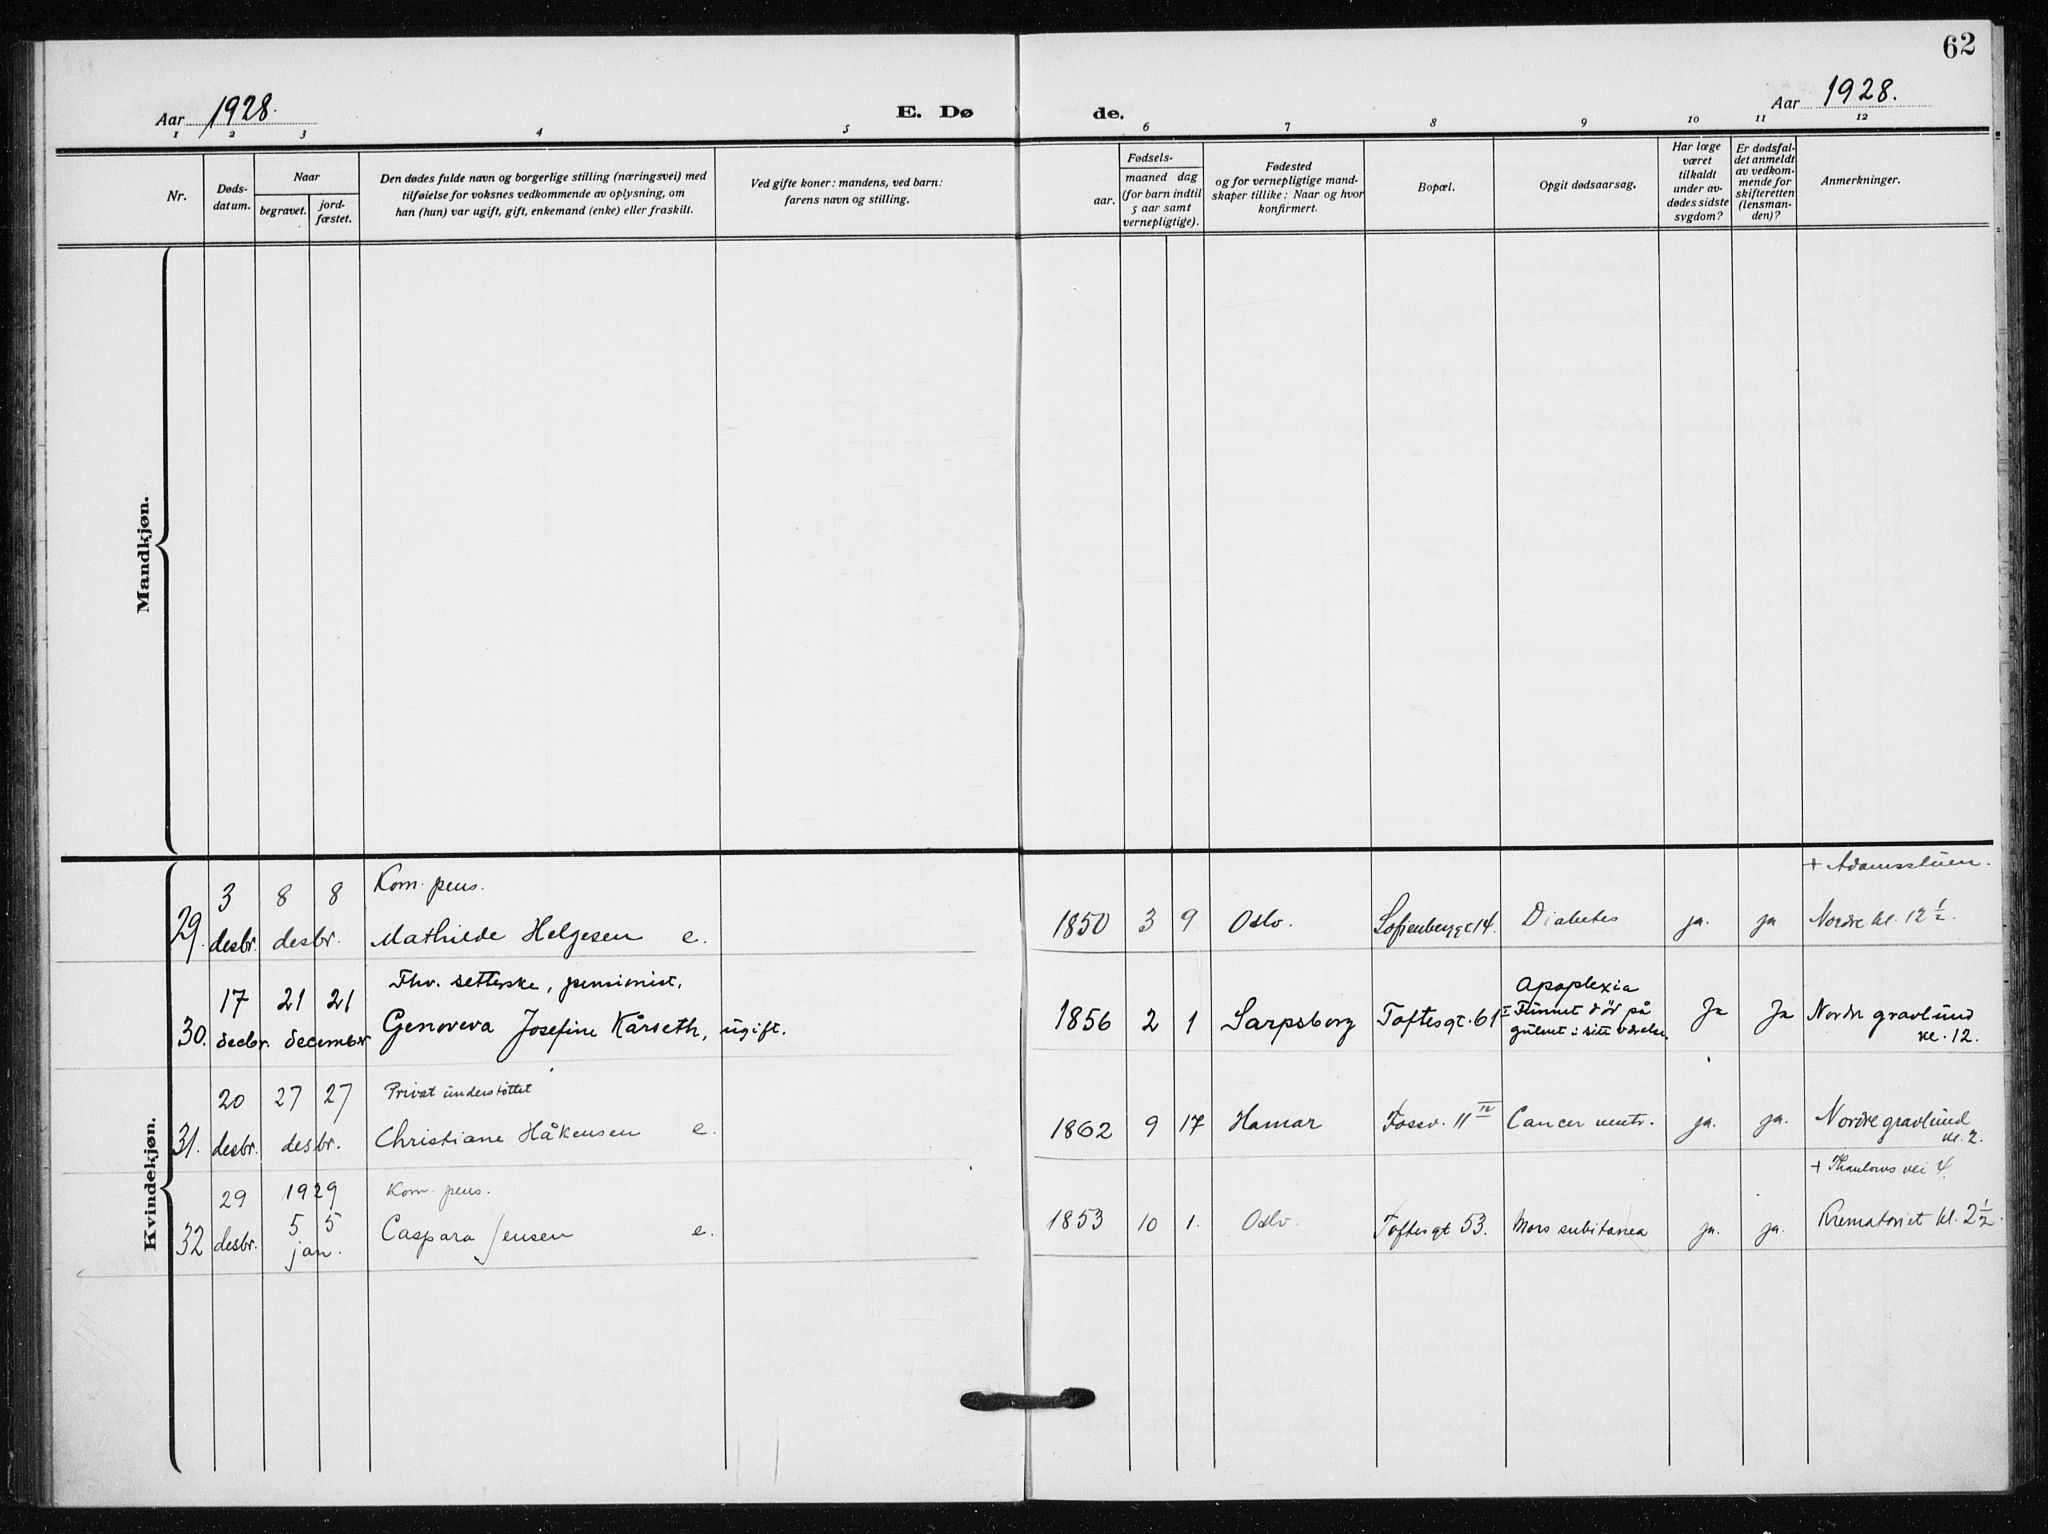 62
Aar 1928. E. Dø de. Aar 1928.
1 2 3 4 5 6 7 8 9 10 11 12
Nr.
Døds-
datum.
Naar
begravet.
jord-
fæstet.
Den dødes fulde navn og borgerlige stilling (næringsvei) med
tilføielse for voksnes vedkommende av oplysning, om
han (hun) var ugift, gift, enkemand (enke) eller fraskilt.
Ved gifte koner: mandens, ved barn:
farens navn og stilling.
Fødsels-
aar.
maaned dag
(for barn indtil
5 aar samt
vernepligtige).
Fødested
og for vernepligtige mand-
skaper tillike: Naar og hvor
konfirmert.
Bopæl.
Opgit dødsaarsag.
Har læge
været
tilkaldt
under av-
dødes sidste
sygdom?
Er dødsfal-
det anmeldt
av vedkom-
mende for
skifteretten
(lensman-
den)?
Anmerkninger.
Mandkjøn.
Kvindekjøn.
3 8 8 Kom. pens. + Adamsstuen.
29. desbr. desbr. Mathilde Helgesen e. 1850 3 9 Oslo. Sofienberggt 14. Diabetes ja. ja Nordre kl. 12 ½.
17 21 21 Fhv. setterske, pensionist, Apoplexia
30. decbr. december Genoveva Josefine Kårseth, ugift. 1856 2 1 Sarpsborg Toftesgt. 61 I Funnet død på Ja Ja Nordre gravlund
gulvet i sitt værelse. kl. 12.
20 27 27 Privat understøttet
31. desbr. desbr. Christiane Håkensen e. 1862 9 17 Hamar Fossv. 11 IV Cancer ventr. ja. ja. Nordre gravlund
kl. 2.
29 1929 Kom. pens. + Thaulows vei 4.
32 desbr. 5 5 Caspara Jensen e. 1853 10 1. Oslo. Toftesgt 53. Mors subitanea ja. ja. Krematoriet kl. 2 ½.
jan.